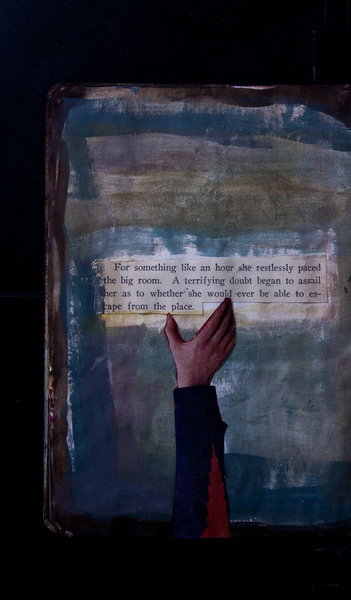 For something like an hour she restlessly paced
the big room. A terrifying doubt began to assail
her as to whether she would ever be able to es-
cape from the place.